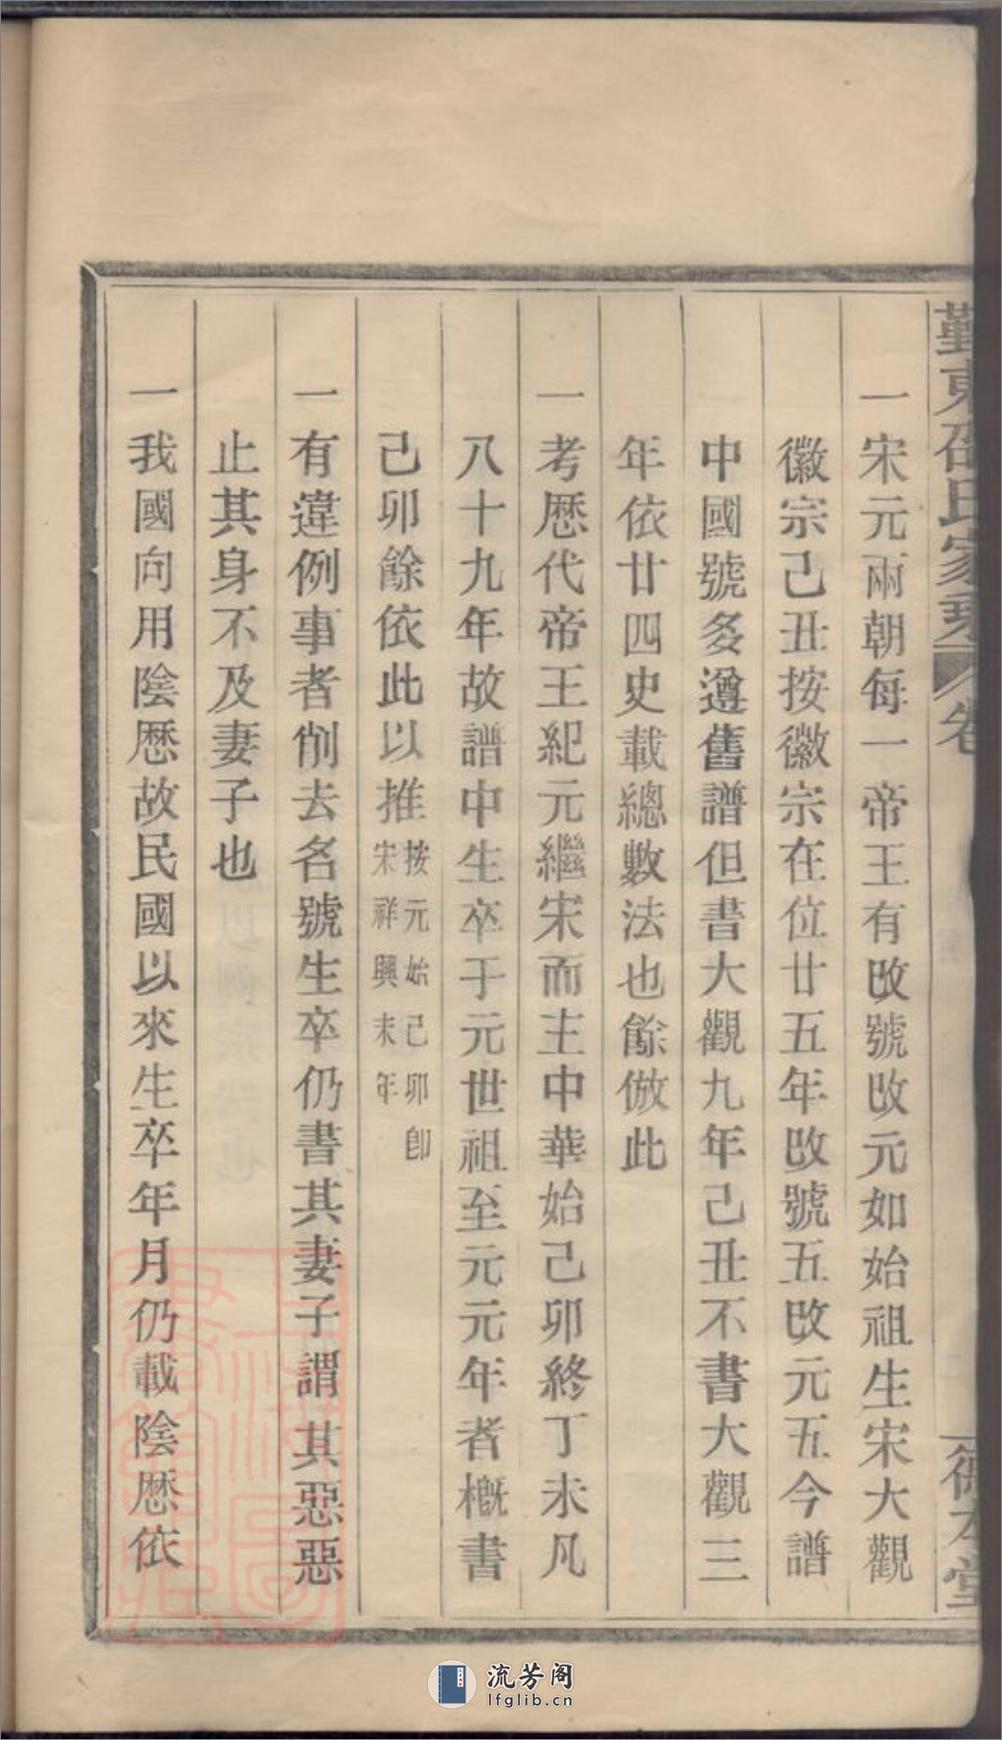 勤東邵氏家乘 卷
堂
一宋元兩朝每一帝王有改號改元如始祖生宋大觀
徽宗己丑按徽宗在位廿五年改號五改元五今譜
中國號多遵舊譜但書大觀九年己丑不書大觀三
年依廿四史載總數法也餘倣此
一考歷代帝王紀元繼宋而主中華始己卯終丁未凡
八十九年故譜中生卒于元世祖至元元年者概書
己卯餘依此以推按元始己卯卽宋祥興末年
一有違例事者削去名號生卒仍書其妻子謂其惡惡
止其身不及妻子也
一我國向用陰歷故民國以來生卒年月仍載陰歷依
流芳阁
lfglib.cn